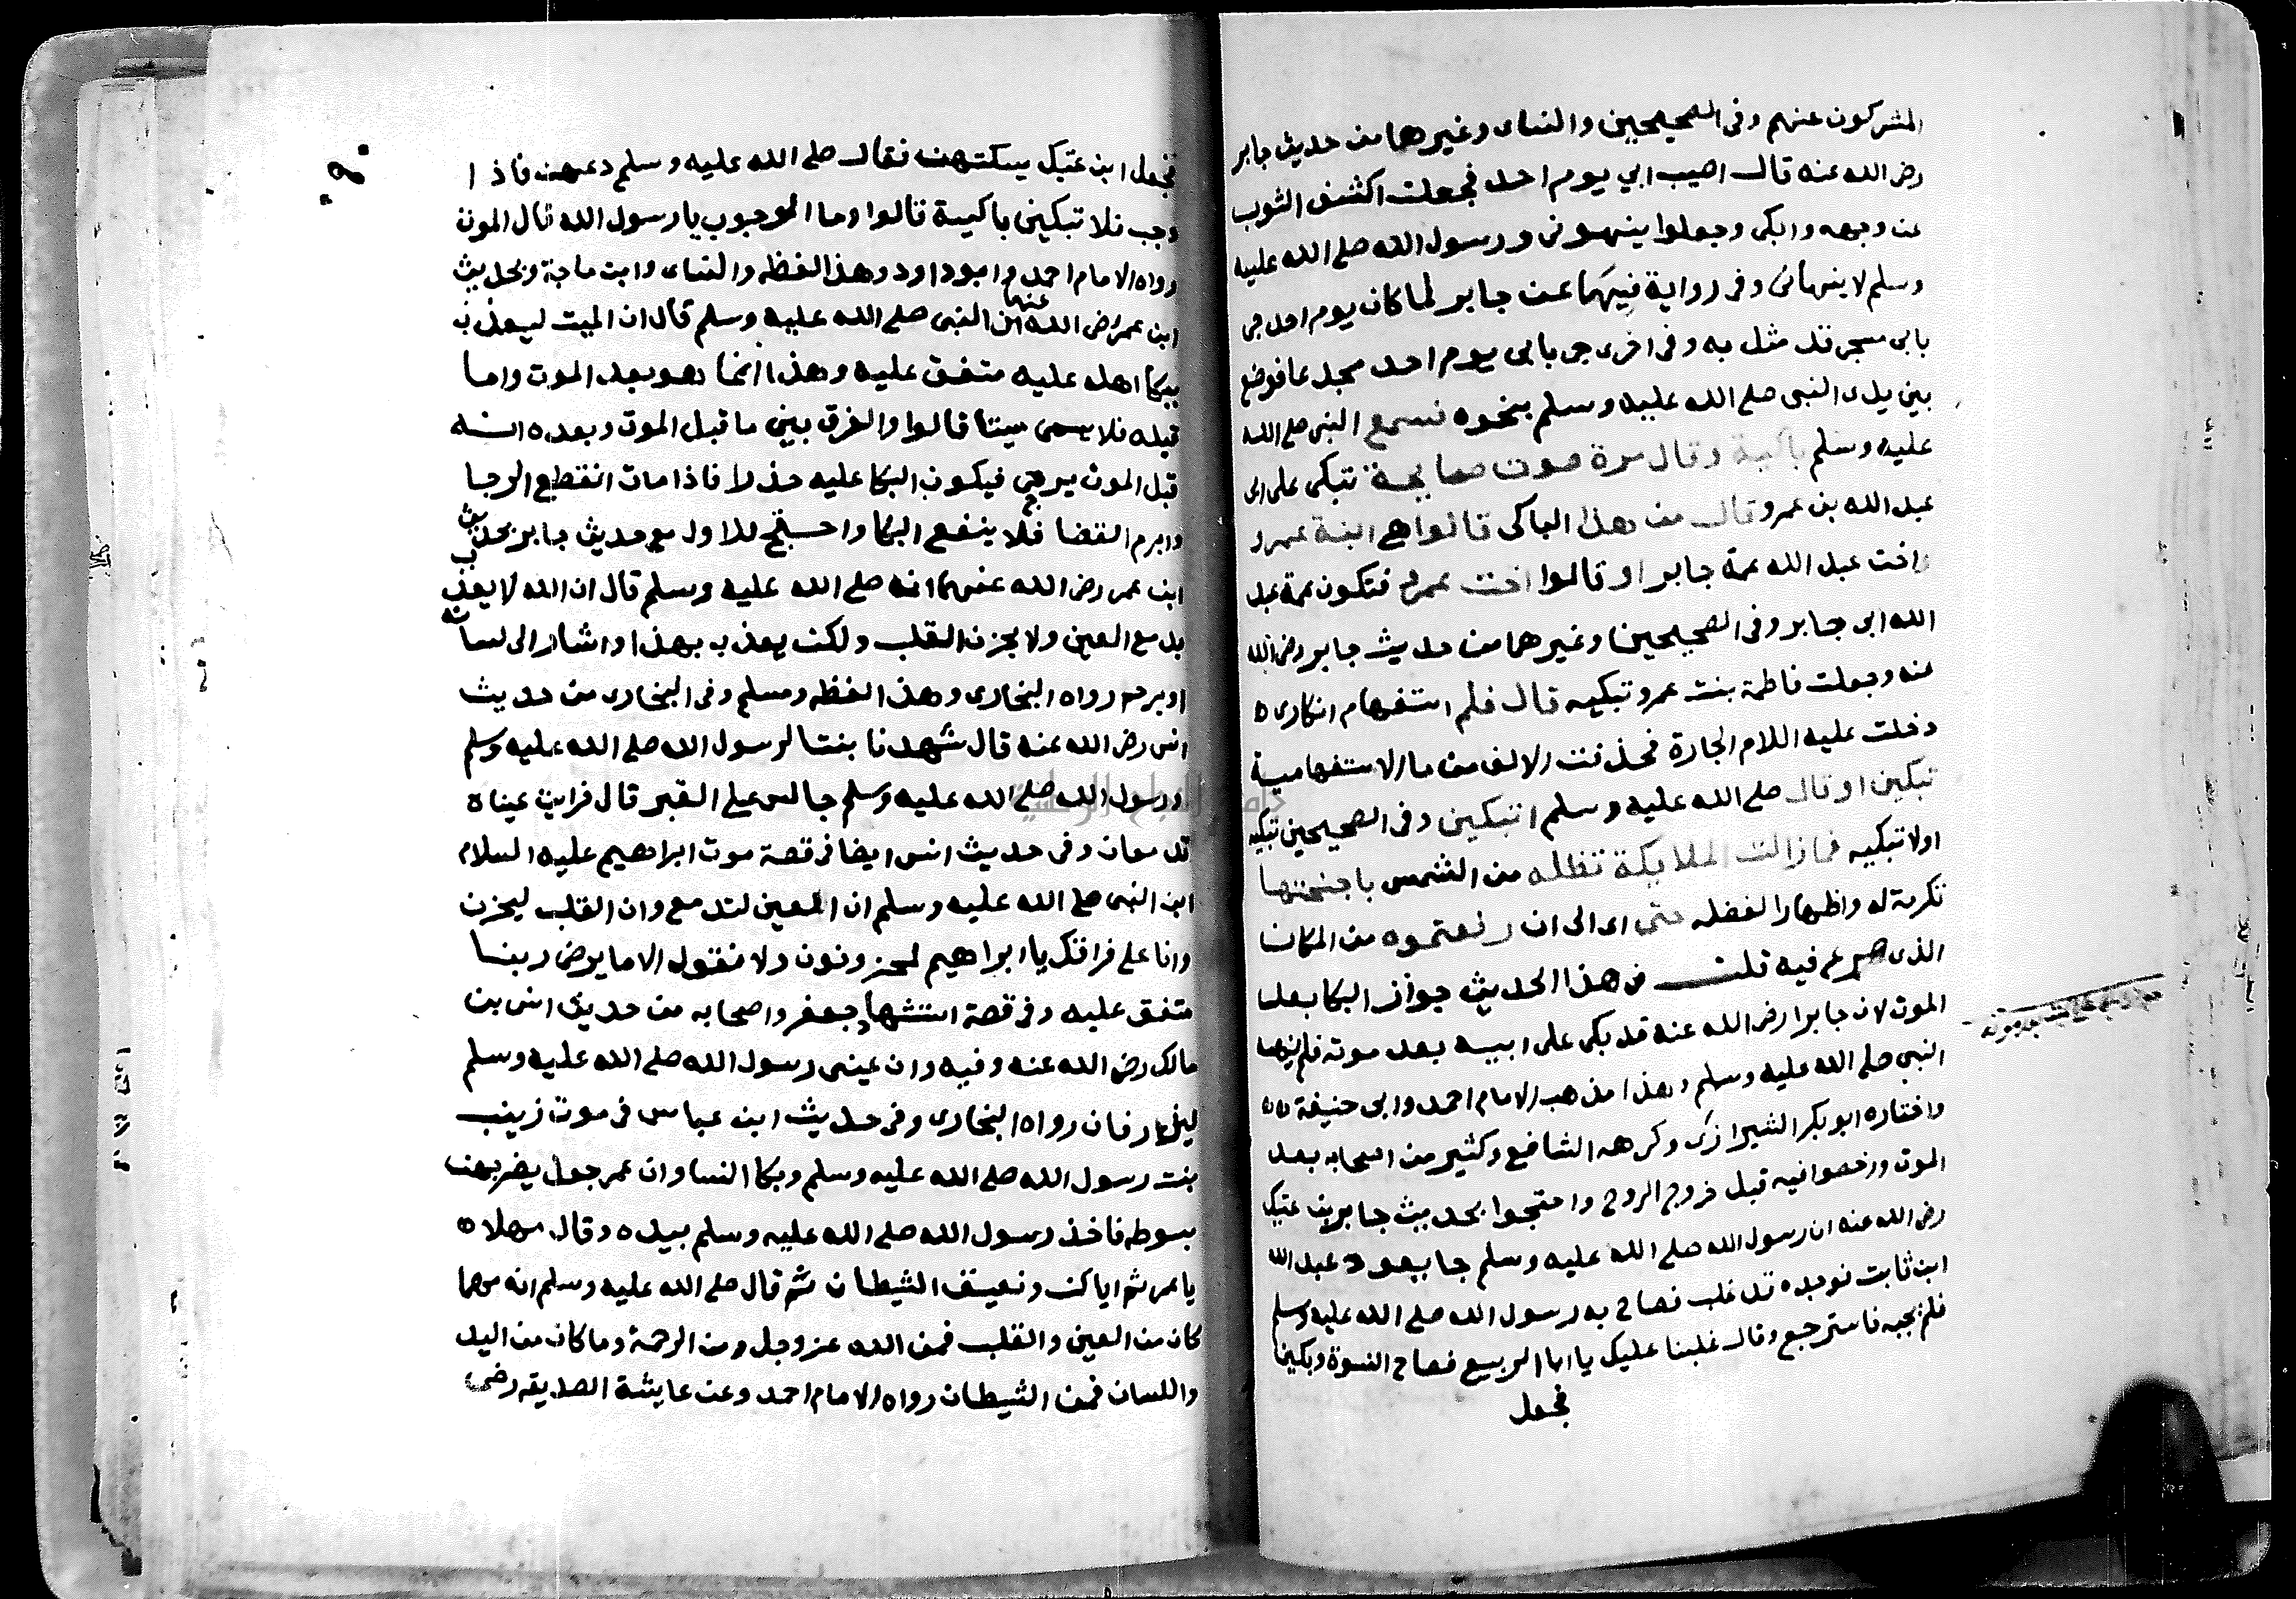 المشركون عنهم وفى الصحيحين والنساى وغيرهما من حديث جابر
رضى الله عنه قال اصيب ابي يوم احد فجعلت اكشف الثوب
عن وجهه وابكى وجعلوا ينهونى ورسول الله صلى الله عليه
وسلم لا ينهانى وفى رواية فيهما عن جابر لما كان يوم احد جى
بابى مسجى قد مثل به وفى اخرى جى بابى يوم احد مجدعا فوضع
بين يدى النبى صلى الله عليه وسلم بنحوه فسمع النبى صلى الله
عليه وسلم باكية وقال مرة صوت صايحة تبكى على ابى
عبد الله بن عمرو قال من هذا الباكى قالوا هى ابنة عمرو
واخت عبد الله عمة جابر او قالوا اخت عمرو فتكون عمة عبد
الله ابى جابر وفى الصحيحين وغيرهما من حديث جابر رضى الله
عنه وجعلت فاطمة بنت عمرو تبكيه قال فلم استفهام انكارى
دخلت عليه اللام الجارة فحذفت الالف من ما الاستفهامية
تبكين او قال صلى الله عليه وسلم اتبكين وفى الصحيحين تبكيه
اولا تبكيه فما زالت الملايكة تظله من الشمس باجنحتها
تكرمة له واظهارا لفضله حتى اى الى ان رفعتموه من المكان
الذى صرع فيه قلت فى هذا الحديث جواز البكا بعد
الموت لان جابرا رضى الله عنه قد بكى على ابيه بعد موته فلم ينهه
النبى صلى الله عليه وسلم وهذا مذهب الامام احمد وابى حنيفة
واختاره ابو بكر الشيرازى وكرهه الشافعى وكثير من اصحابه بعد
الموت ورخصوا فيه قبل خروج الروح واحتجوا بحديث جابر بن عتيك
رضى الله عنه ان رسول الله صلى الله عليه وسلم جا يعود عبد الله
ابن ثابت فوجده قد غلب فصاح به رسول الله صلى الله عليه وسلم
فلم يجبه فاسترجع وقال غلبنا عليك يا ابا الربيع فصاح النسوة وبكين
فجعل
فجعل ابن عتيك يسكتهن فقال صلى الله عليه وسلم دعهن فاذا
وجب فلا تبكين باكية قالوا وما الوجوب يا رسول الله قال الموت
رواه الامام احمد وابو داود وهذا لفظه والنساى وابن ماجة وبحديث
ابن عمر رضى الله عنهما ان النبى صلى الله عليه وسلم قال ان الميت ليعذب
ببكا اهله عليه متفق عليه وهذا انما هو بعد الموت واما
قبله فلا يسمى ميتا قالوا والفرق بين ما قبل الموت وبعده انه
قبل الموت يرجى فيكون البكا عليه حذرا فاذا مات انقطع الرجا
وابرم القضا فلا ينفع البكا واحتج للاول مع حديث جابر بحديث
ابن عمر رضى الله عنهما انه صلى الله عليه وسلم قال ان الله لا يعذب
بدمع العين ولا بحزن القلب ولكن يعذب بهذا واشار الى لسانه
او يرحم رواه البخارى وهذا لفظه ومسلم وفى البخارى من حديث
انس رضى الله عنه قال شهدنا بنتا لرسول الله صلى الله عليه وسلم
ورسول الله صلى الله عليه وسلم جالس على القبر قال فرايت عيناه
تدمعان وفى حديث انس ايضا فى قصة موت ابراهيم عليه السلام
ابن النبى صلى الله عليه وسلم ان العين لتدمع وان القلب ليحزن
وانا على فراقك يا ابراهيم لمحزونون ولا نقول الا ما يرضى ربنا
متفق عليه وفى قصة استشهاد جعفر واصحابه من حديث انس بن
مالك رضى الله عنه وفيه وان عينى رسول الله صلى الله عليه وسلم
لتذرفان رواه البخارى وفى حديث ابن عباس فى موت زينب
بنت رسول الله صلى الله عليه وسلم وبكا النسا وان عمر جعل يضربهن
بسوطه فاخذ رسول الله صلى الله عليه وسلم بيده وقال مهلا
يا عمر ثم اياكن ونعيق الشيطان ثم قال صلى الله عليه وسلم انه مهما
كان من العين والقلب فمن الله عز وجل ومن الرحمة وما كان من اليد
واللسان فمن الشيطان رواه الامام احمد وعن عايشة الصديقه رضى